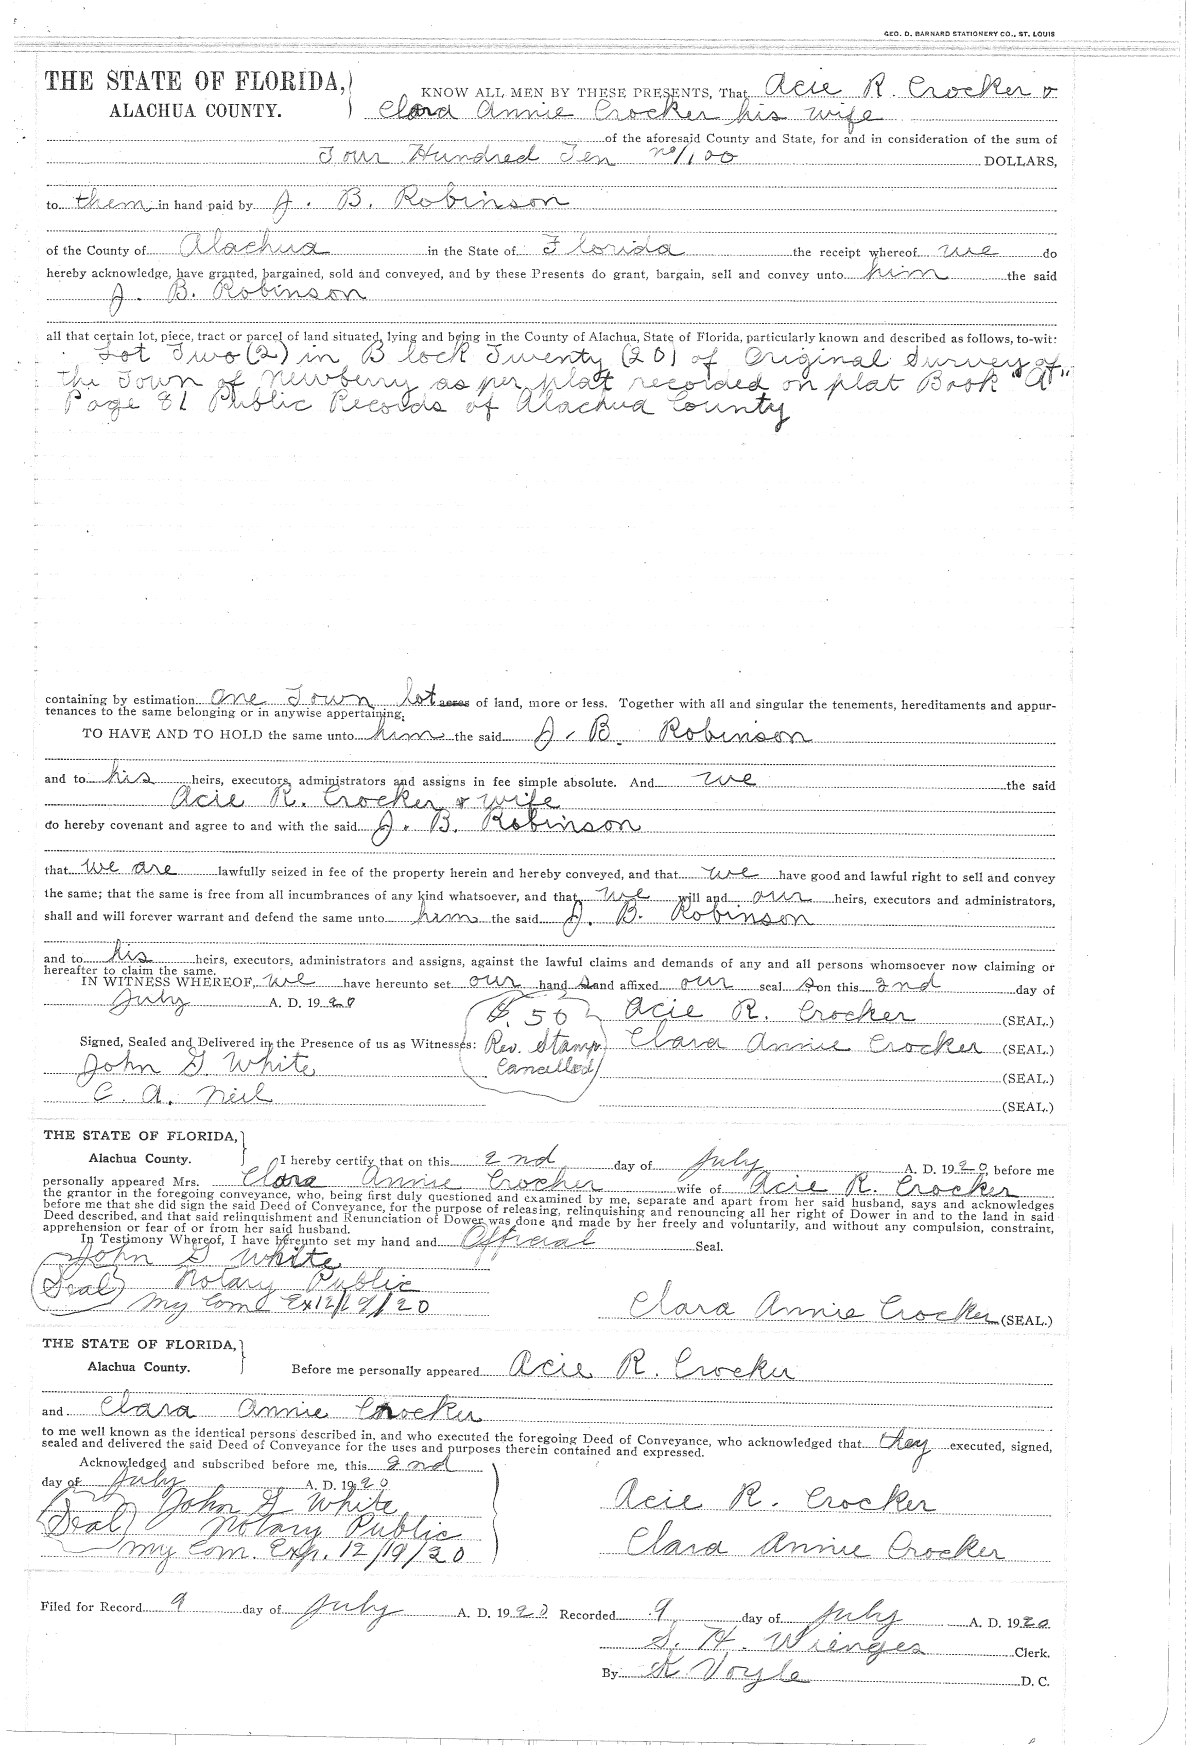 GEO. D. BARNARD STATIONERY CO., ST. LOUIS
THE STATE OF FLORIDA, KNOW ALL MEN BY THESE PRESENTS, That Acie R. Crocker &
ALACHUA COUNTY. Clara Annie Crocker his wife
of the aforesaid County and State, for and in consideration of the sum of
Four Hundred Ten no/100 DOLLARS,
to them in hand paid by J. B. Robinson
of the County of Alachua in the State of Florida the receipt whereof we do
hereby acknowledge, have granted, bargained, sold and conveyed, and by these Presents do grant, bargain, sell and convey unto him the said
J. B. Robinson
all that certain lot, piece, tract or parcel of land situated, lying and being in the County of Alachua, State of Florida, particularly known and described as follows, to-wit:
Lot Two (2) in Block Twenty (20) of Original Survey of
the Town of Newberry as per plat recorded on plat Book "A"
Page 81 Public Records of Alachua County
containing by estimation one Town lot acres of land, more or less. Together with all and singular the tenements, hereditaments and appur-
tenances to the same belonging or in anywise appertaining.
TO HAVE AND TO HOLD the same unto him the said J. B. Robinson
and to his heirs, executors, administrators and assigns in fee simple absolute. And we the said
Acie R. Crocker & wife
do hereby covenant and agree to and with the said J. B. Robinson
that we are lawfully seized in fee of the property herein and hereby conveyed, and that we have good and lawful right to sell and convey
the same; that the same is free from all incumbrances of any kind whatsoever, and that we will and our heirs, executors and administrators,
shall and will forever warrant and defend the same unto him the said J. B. Robinson
and to his heirs, executors, administrators and assigns, against the lawful claims and demands of any and all persons whomsoever now claiming or
hereafter to claim the same.
IN WITNESS WHEREOF, we have hereunto set our hand s and affixed our seal s on this 2nd day of
July A. D. 1920 $.50 Acie R. Crocker (SEAL.)
Signed, Sealed and Delivered in the Presence of us as Witnesses: Rev. Stamp Clara Annie Crocker (SEAL.)
John G White Cancelled (SEAL.)
C. A. Neil (SEAL.)
THE STATE OF FLORIDA,
Alachua County. I hereby certify that on this 2nd day of July A. D. 1920, before me
personally appeared Mrs. Clara Annie Crocker wife of Acie R. Crocker
the grantor in the foregoing conveyance, who, being first duly questioned and examined by me, separate and apart from her said husband, says and acknowledges
before me that she did sign the said Deed of Conveyance, for the purpose of releasing, relinquishing and renouncing all her right of Dower in and to the land in said
Deed described, and that said relinquishment and Renunciation of Dower was done and made by her freely and voluntarily, and without any compulsion, constraint,
apprehension or fear of or from her said husband.
In Testimony Whereof, I have hereunto set my hand and Official Seal.
John G White
(Seal) Notary Public
My Com Ex 12/19/20 Clara Annie Crocker (SEAL.)
THE STATE OF FLORIDA,
Alachua County. Before me personally appeared Acie R. Crocker
and Clara Annie Crocker
to me well known as the identical persons described in, and who executed the foregoing Deed of Conveyance, who acknowledged that they executed, signed,
sealed and delivered the said Deed of Conveyance for the uses and purposes therein contained and expressed.
Acknowledged and subscribed before me, this 2nd
day of July A. D. 1920
John G White Acie R. Crocker
(Seal) Notary Public
My Com. Exp. 12/19/20 Clara Annie Crocker
Filed for Record 9 day of July A. D. 1920 Recorded 9 day of July A. D. 1920
S. H. Wienges Clerk.
By K Voyle D. C.